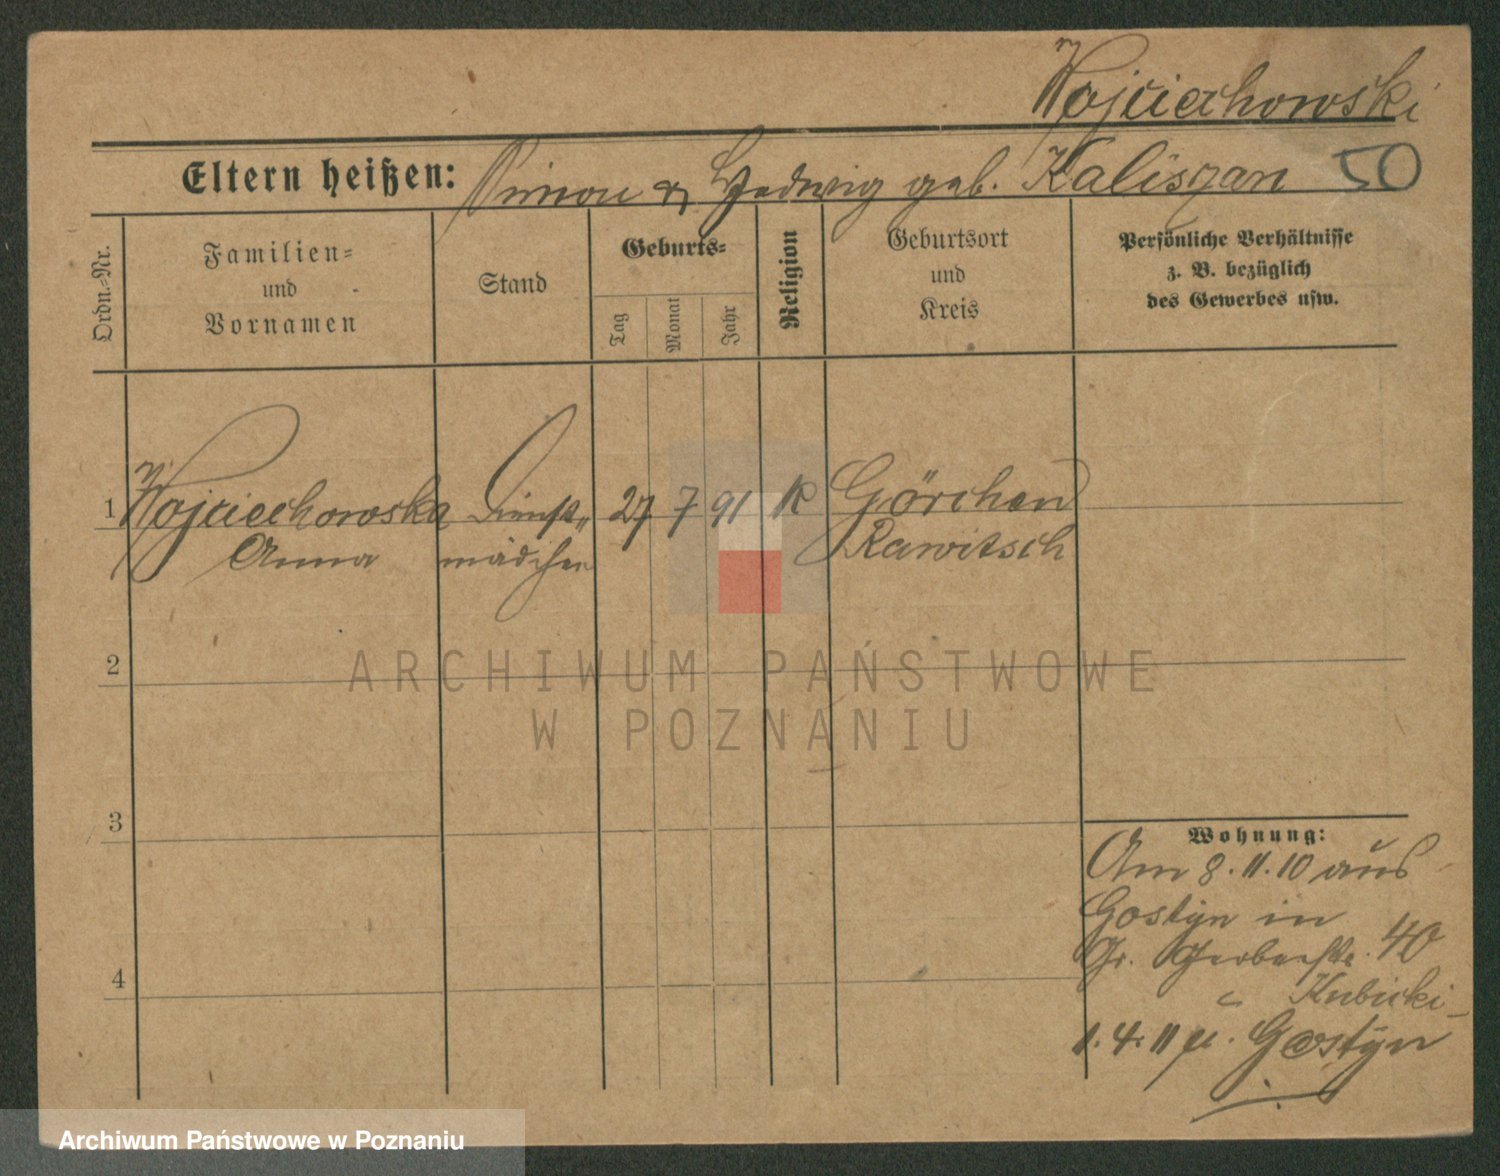 Wojciechowski
Eltern heißen: Simon & Hedwig geb. Kaliszan 50
Ordn.-Nr.
Familien-
und
Vornamen
Stand
Geburts-
Tag
Monat
Jahr
Religion
Geburtsort
und
Kreis
Persönliche Verhältnisse
z. B. bezüglich
des Gewerbes usw.
1 Wojciechowska Dienst„ 27 7 91 K Görchen
Anna mädchen Rawitsch
ARCHIWUM PAŃSTWOWE
W POZNANIU
2
3
4
Wohnung:
Am 8.11.10 aus
Gostyn in
Gr. Gerberstr. 40
Kubicki
1.4.11 Gostyn
Archiwum Państwowe w Poznaniu